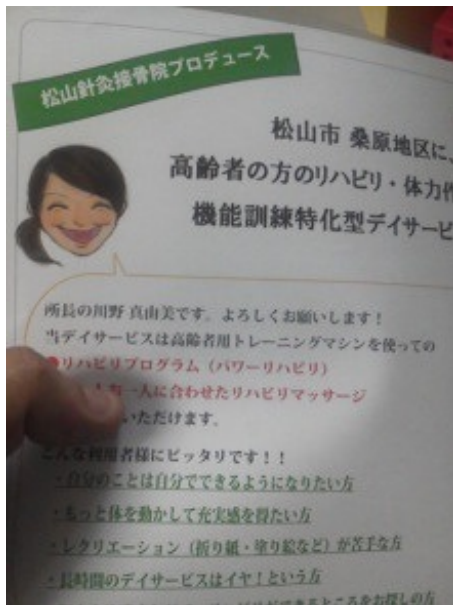 松山針灸接骨院プロデュース
松山市 桑原地区に、
高齢者の方のリハビリ・体力作
機能訓練特化型デイサービ
所長の川野 真由美です。よろしくお願いします！
当デイサービスは高齢者用トレーニングマシンを使っての
リハビリプログラム（パワーリハビリ）
一人に合わせたリハビリマッサージ
いただけます。
こんな利用者様にピッタリです！！
・自分のことは自分でできるようになりたい方
・もっと体を動かして充実感を得たい方
・レクリエーション（折り紙・塗り絵など）が苦手な方
・長時間のデイサービスはイヤ！という方
できるところをお探しの方